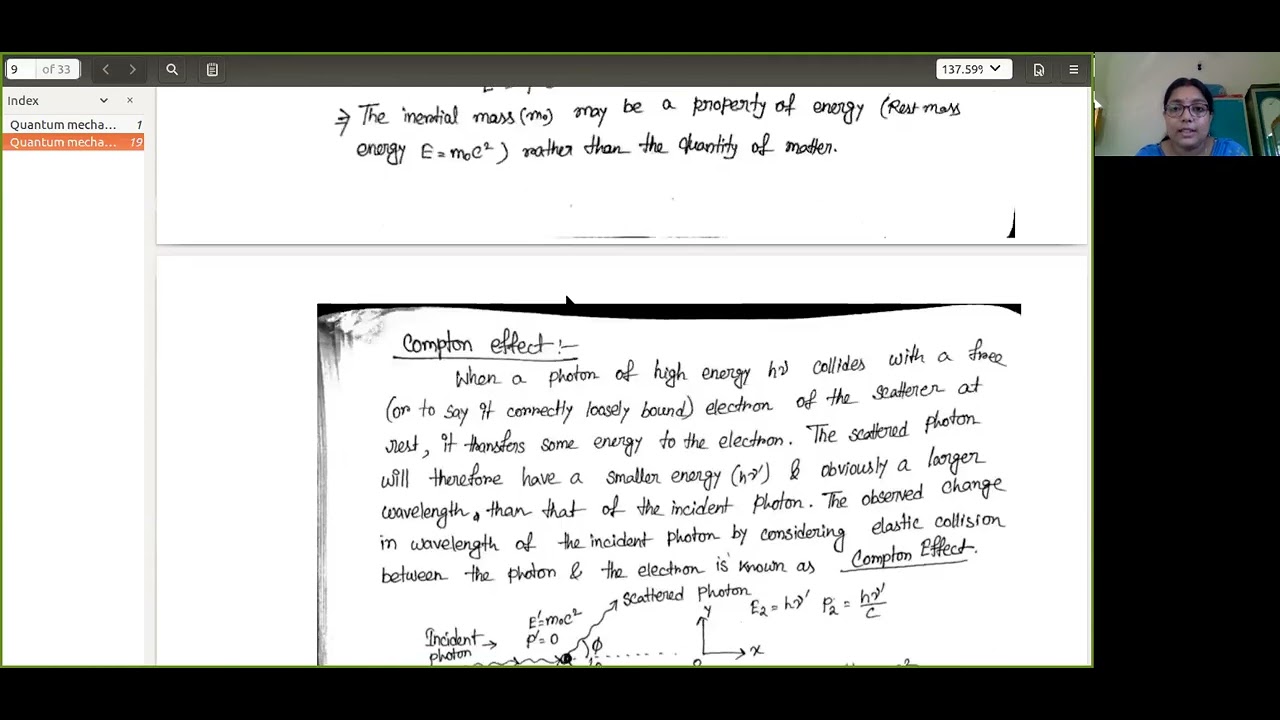 9 of 33
137.59%
Index
Quantum mecha... 1
Quantum mecha... 19
⇒ The inertial mass (m₀) may be a property of energy (Rest mass
energy E = m₀c²) rather than the quantity of matter.
Compton effect:-
When a photon of high energy hν collides with a free
(or to say it correctly loosely bound) electron of the scatterer at
rest, it transfers some energy to the electron. The scattered photon
will therefore have a smaller energy (hν') & obviously a larger
wavelength, than that of the incident photon. The observed change
in wavelength of the incident photon by considering elastic collision
between the photon & the electron is known as Compton Effect.
Scattered Photon
E₂ = hν' P₂ = hν'/c
E' = m₀c²
P' = 0
Incident →
photon
φ
y
x